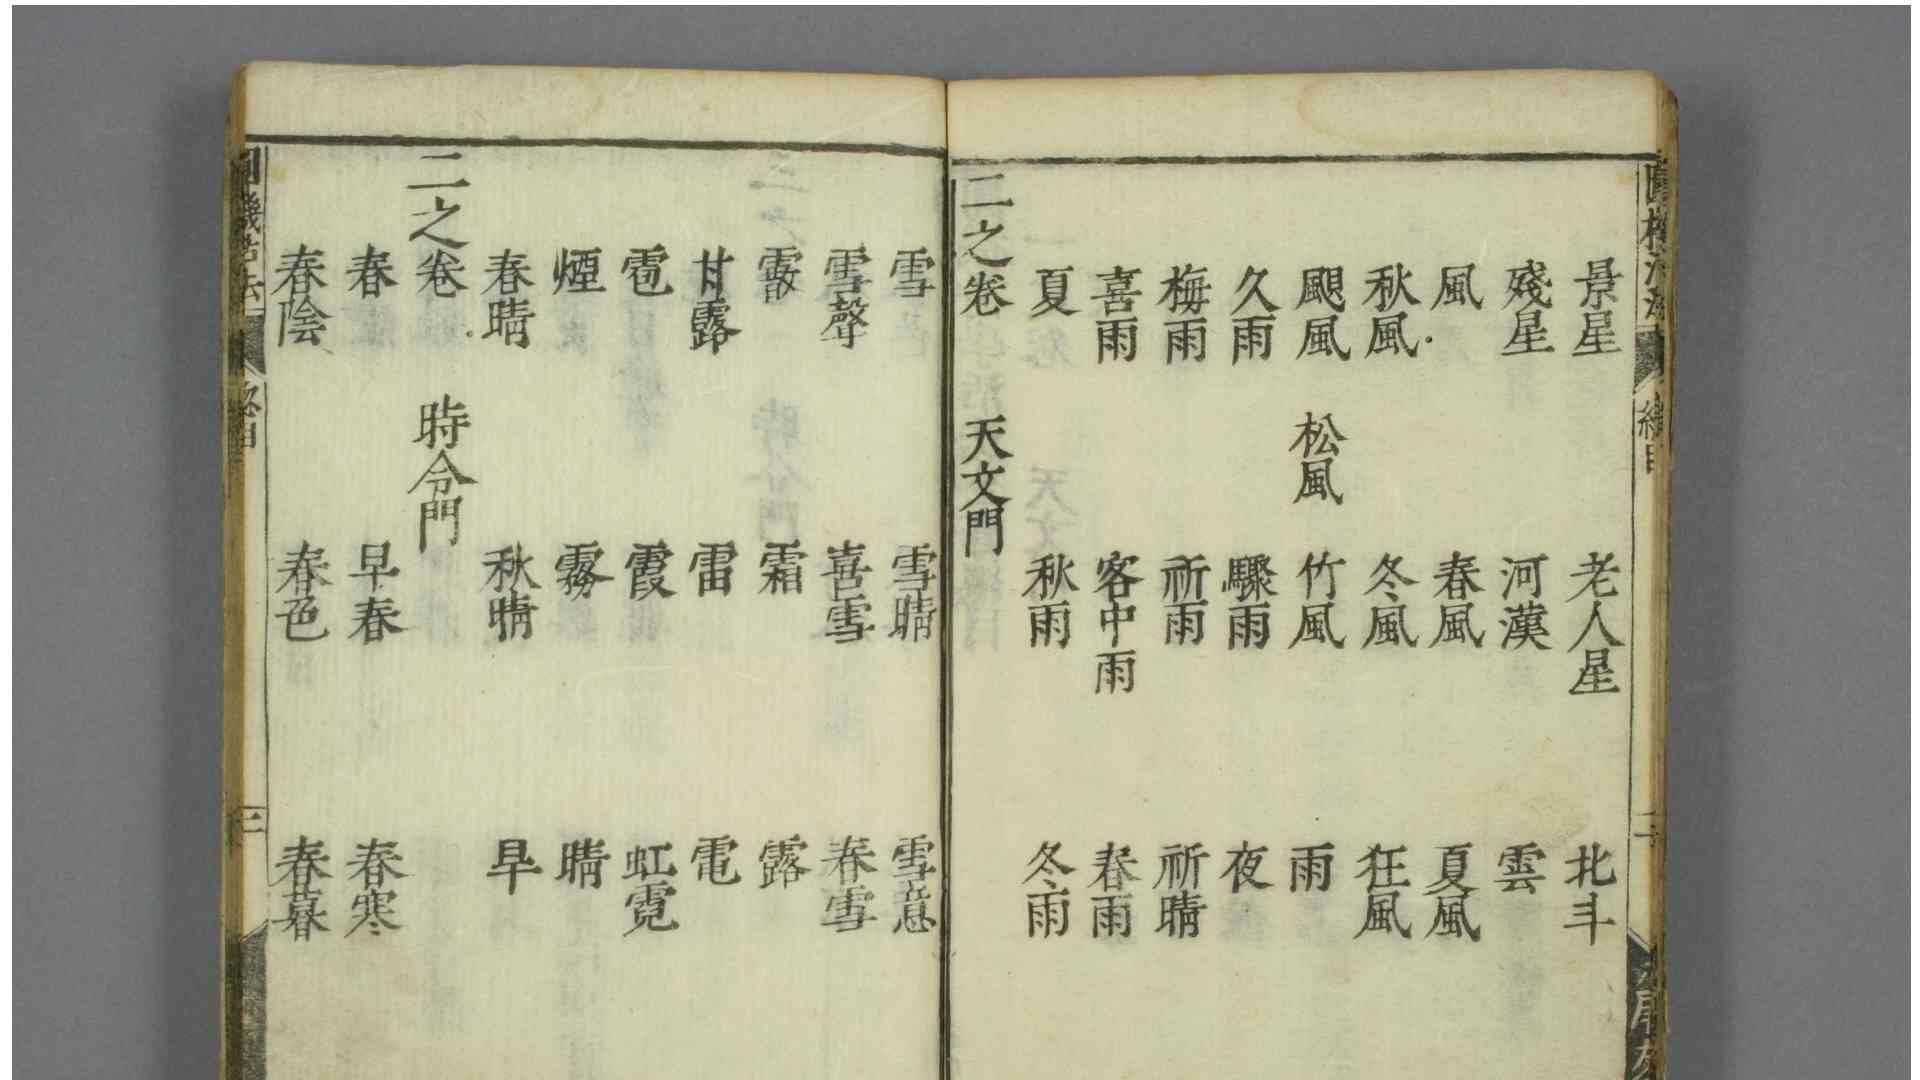 景星 老人星 北斗
殘星 河漢 雲
風 春風 夏風
秋風 冬風 狂風
颶風 松風 竹風 雨
久雨 驟雨 夜
梅雨 祈雨 祈晴
喜雨 客中雨 春雨
夏 秋雨 冬雨
二之卷 天文門
雪 雪晴 雪意
雪聲 喜雪 春雪
霰 霜 露
甘露 雷 電
雹 霞 虹霓
煙 霧 晴
春晴 秋晴 旱
二之卷 時令門
春 早春 春寒
春陰 春色 春暮
三